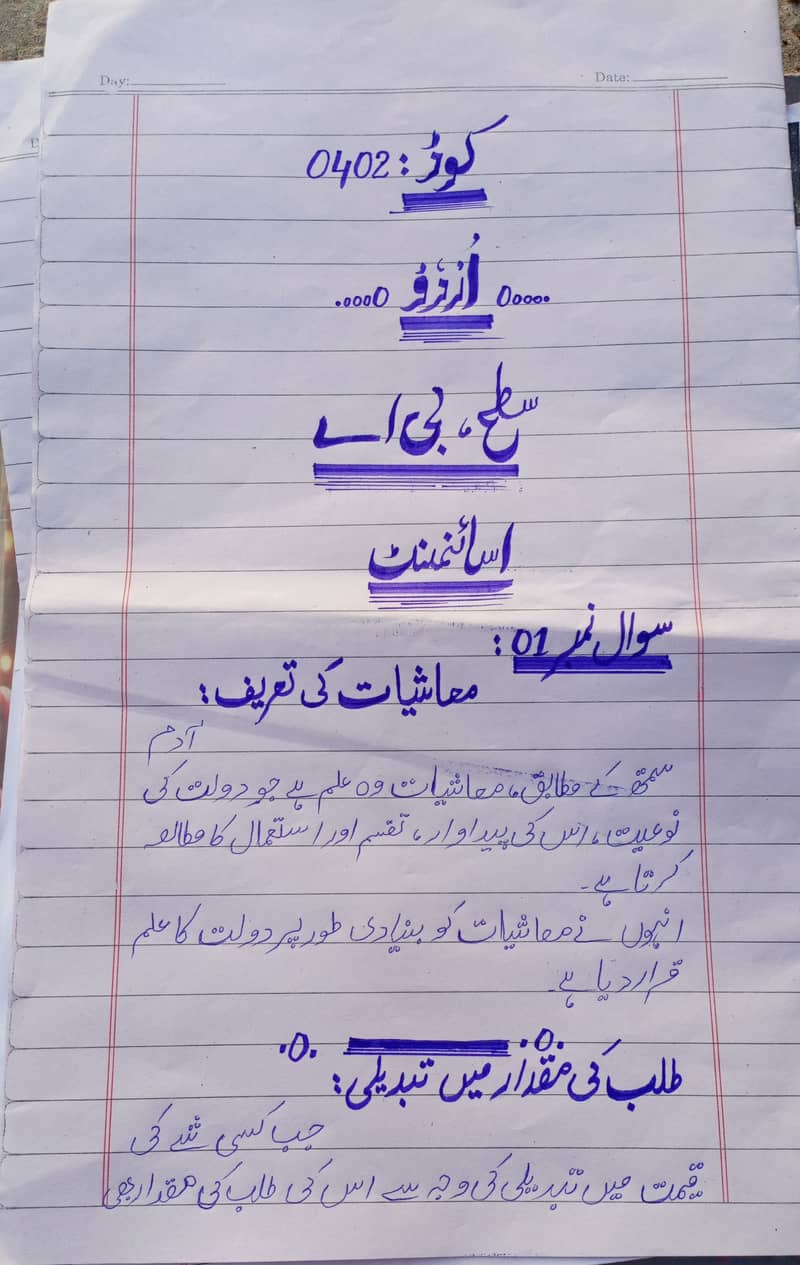 Day:
Date:
کوڑ: 0402
0.... اُرَدُو ....0
سطح، بی اے
اسائنمنٹ
سوال نمبر 01:
معاشیات کی تعریف:
آدم
سمتھ کے مطابق، معاشیات وہ علم ہے جو دولت کی
نوعیت، اس کی پیداوار، تقسم اور استعمال کا مطالعہ
کرتا ہے۔
انہوں نے معاشیات کو بنیادی طور پر دولت کا علم
قرار دیا ہے۔
طلب کی مقدار میں تبدیلی:
جب کسی شے کی
قیمت میں تبدیلی کی وجہ سے اس کی طلب کی مقدار بھی